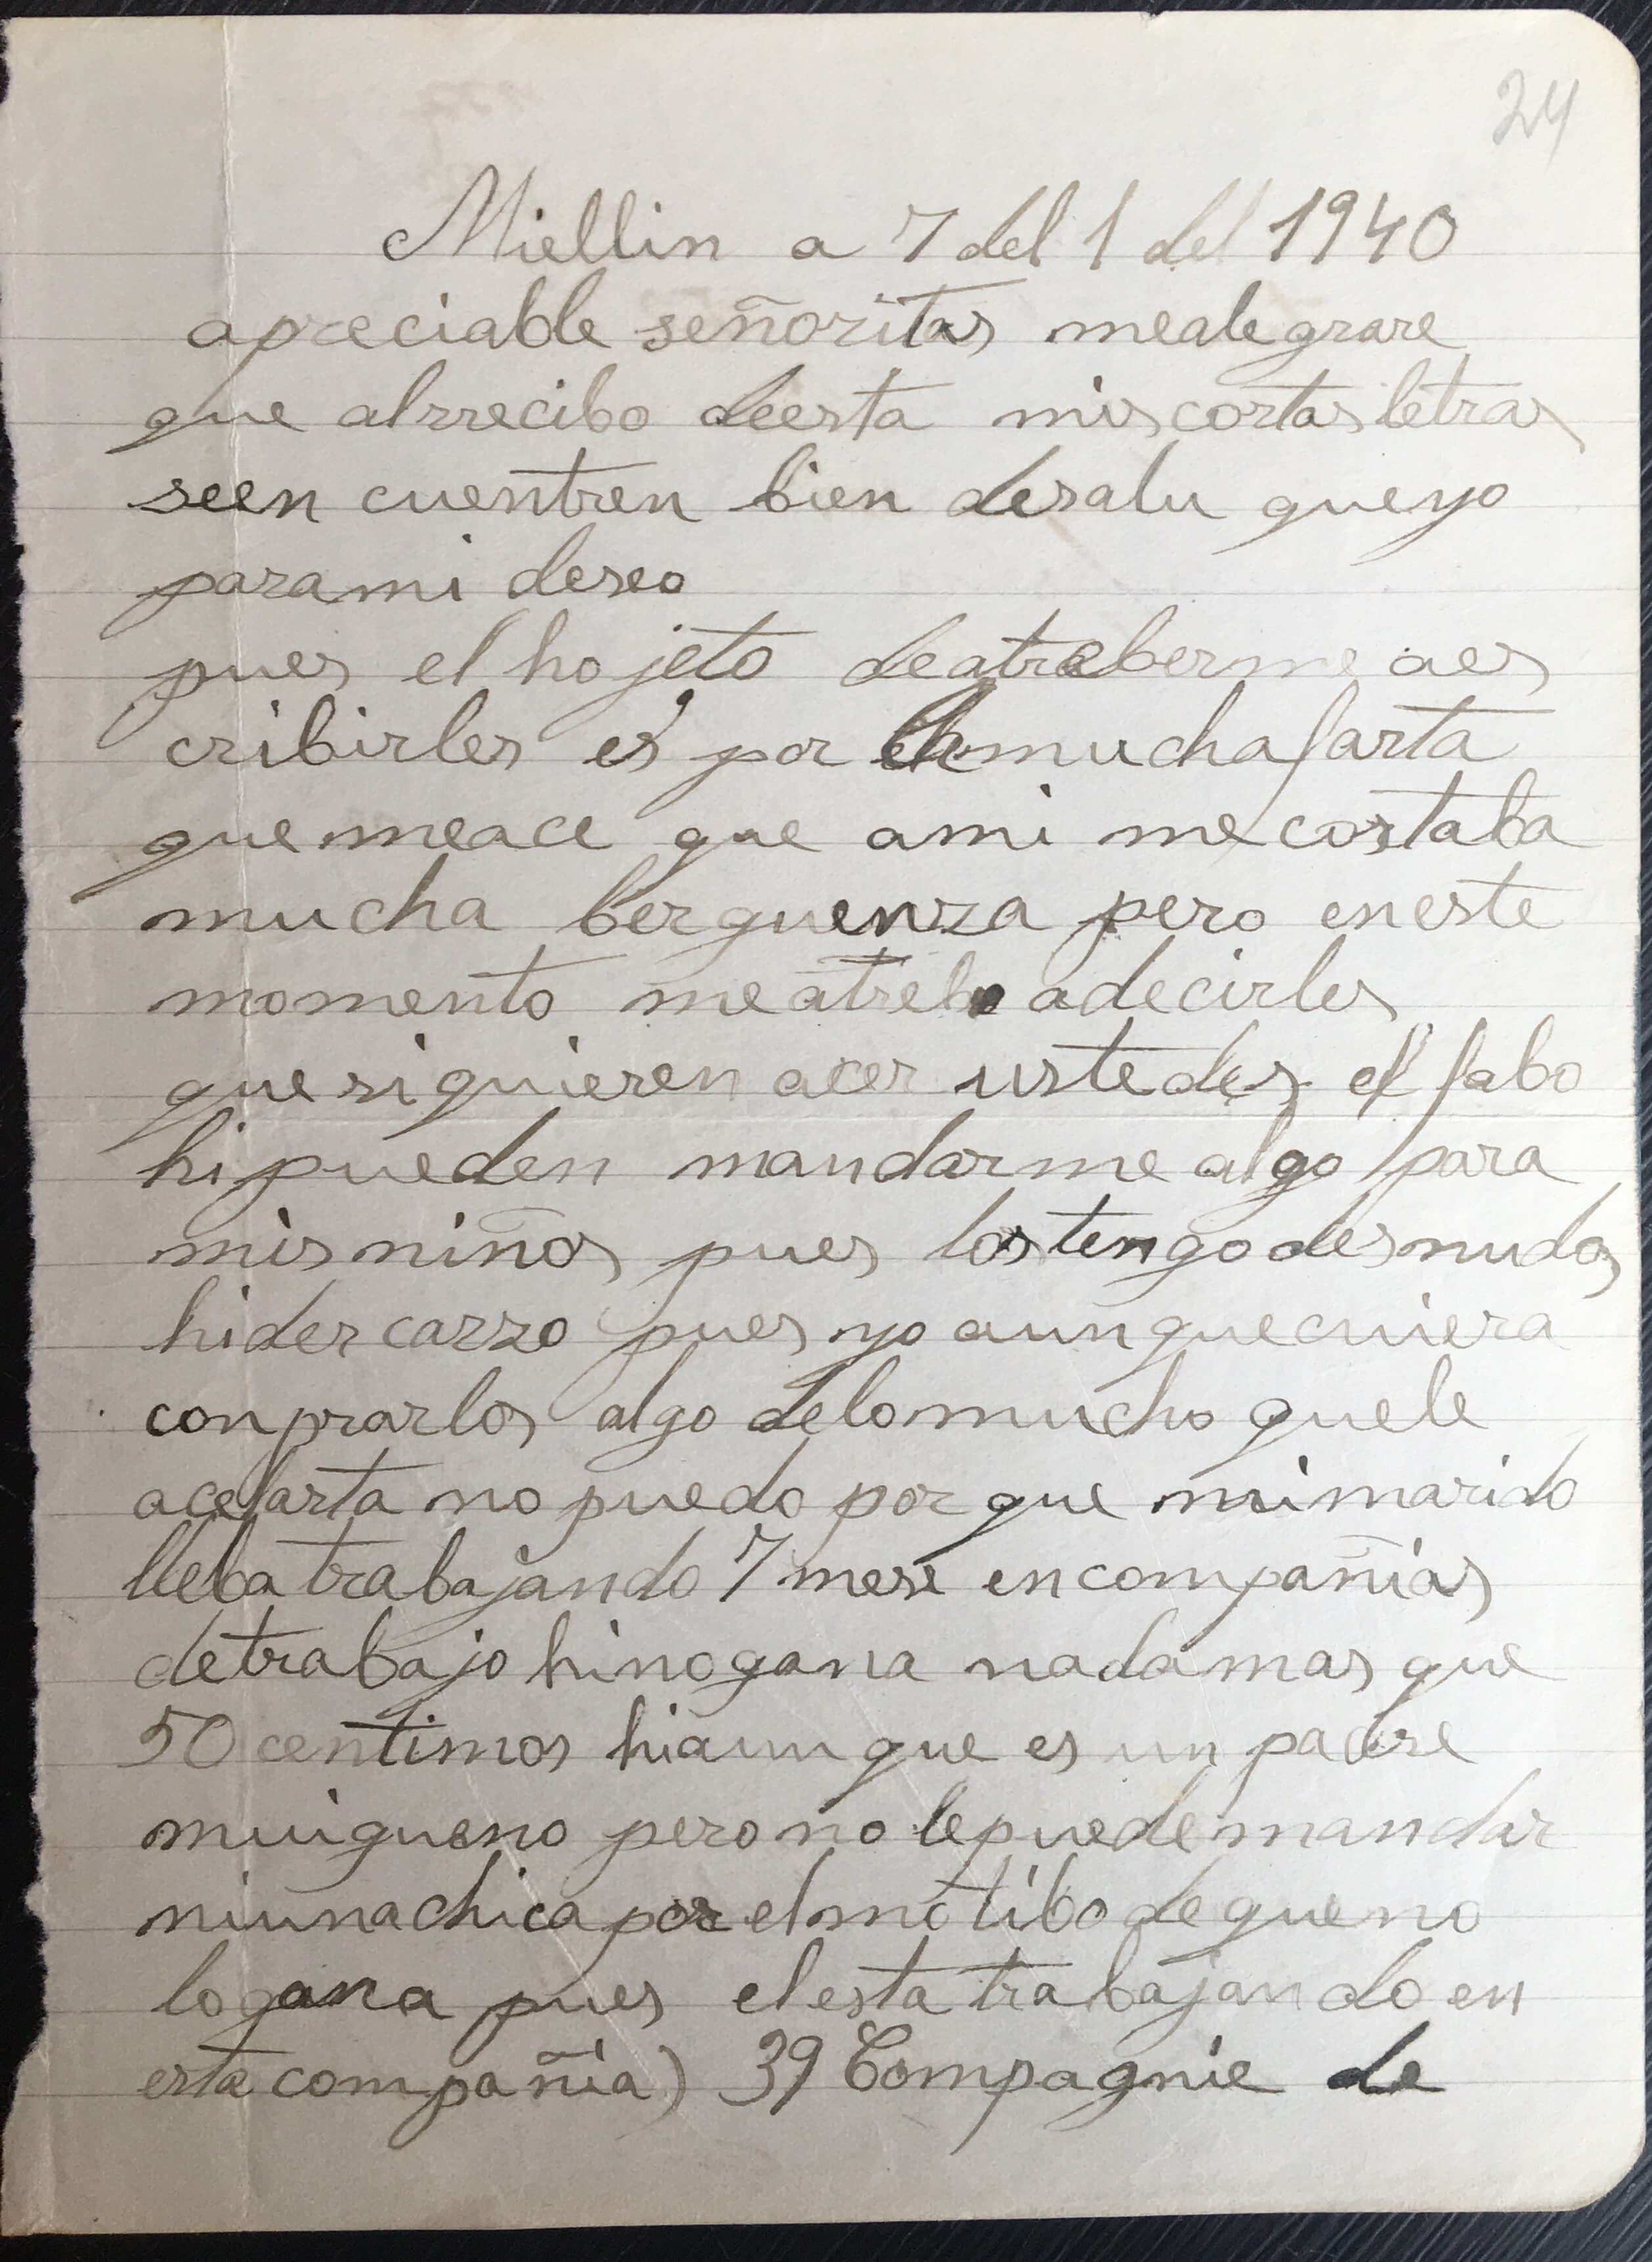 24
Miellin a 7 del 1 del 1940
apreciable señoritas mealegrare
que alrrecibo deesta mis cortas letras
seen cuentren bien desalu queyo
parami deseo
pues el hojeto deatreberme aes
cribirles es por la mucha farta
que meace que ami me costaba
mucha berguenza pero eneste
momento meatrebo adecirles
que si quieren acer ustedes el fabo
hi pueden mandarme algo para
mis niños pues los tengo desnudos
hidescarzo pues yo aunque cuiera
conprarlos algo delomucho quele
acefarta no puedo por que mimarido
lleba trabajando 7 mese encompañias
detrabajo hinogana nadamas que
50 centimos hiaunque es un padre
muigueno pero no lepuedemandar
niunachica por elmotibo de queno
logana pues elesta trabajando en
esta compañia) 39 Compagnie de